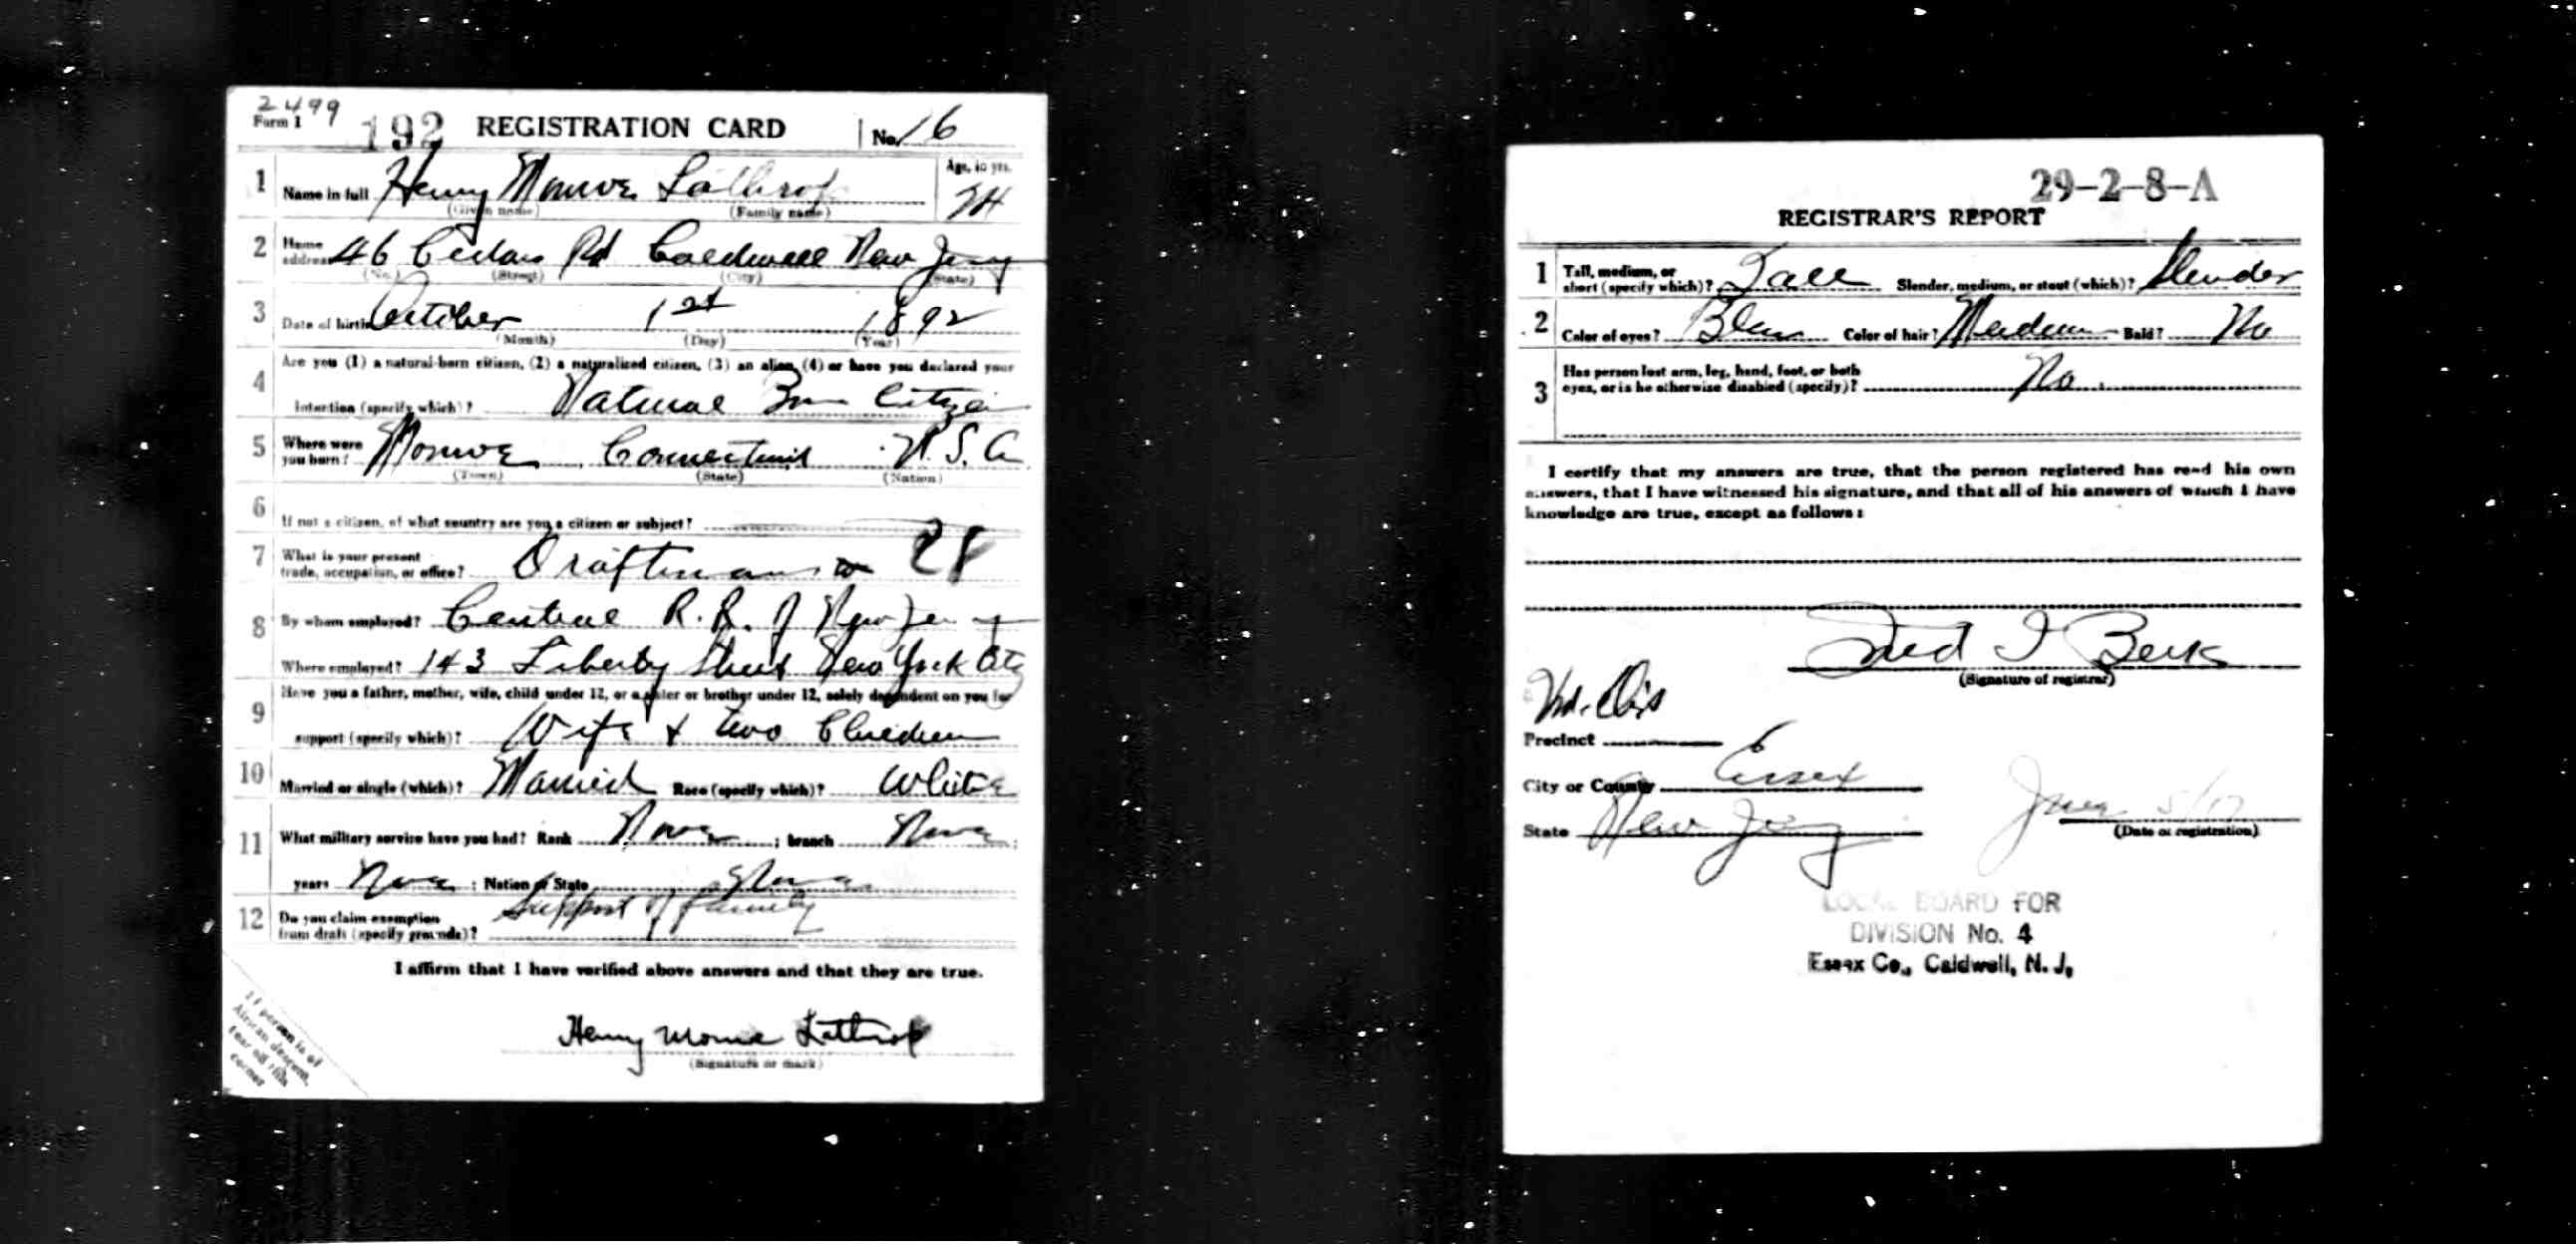 2499
Form 1 192 REGISTRATION CARD No. 16
1 Name in full Henry Monroe Lathrop Age, in yrs. 24
(Given name) (Family name)
2 Home address 46 Cedars Rd Caldwell New Jersey
(No.) (Street) (City) (State)
3 Date of birth October 1st 1892
(Month) (Day) (Year)
4 Are you (1) a natural-born citizen, (2) a naturalized citizen, (3) an alien, (4) or have you declared your
intention (specify which)? Natural Born Citizen
5 Where were you born? Monroe Connecticut U.S.A
(Town) (State) (Nation)
6 If not a citizen, of what country are you a citizen or subject?
7 What is your present trade, occupation, or office? Draftsman 28
8 By whom employed? Central R.R. of New Jersey
Where employed? 143 Liberty Street New York City
9 Have you a father, mother, wife, child under 12, or a sister or brother under 12, solely dependent on you for
support (specify which)? Wife & two Children
10 Married or single (which)? Married Race (specify which)? White
11 What military service have you had? Rank None ; branch None ;
years None ; Nation or State None
12 Do you claim exemption from draft (specify grounds)? Support of family
I affirm that I have verified above answers and that they are true.
Henry Monroe Lathrop
(Signature or mark)
If person is of
African descent,
tear off this
corner
29-2-8-A
REGISTRAR'S REPORT
1 Tall, medium, or short (specify which)? Tall Slender, medium, or stout (which)? Slender
2 Color of eyes? Blue Color of hair? Medium Bald? No
3 Has person lost arm, leg, hand, foot, or both eyes, or is he otherwise disabled (specify)? No
I certify that my answers are true, that the person registered has read his own
answers, that I have witnessed his signature, and that all of his answers of which I have
knowledge are true, except as follows:
Fred I Berk
(Signature of registrar)
Precinct
City or County Essex
State New Jersey June 5/17
(Date of registration)
LOCAL BOARD FOR
DIVISION No. 4
Essex Co., Caldwell, N. J.